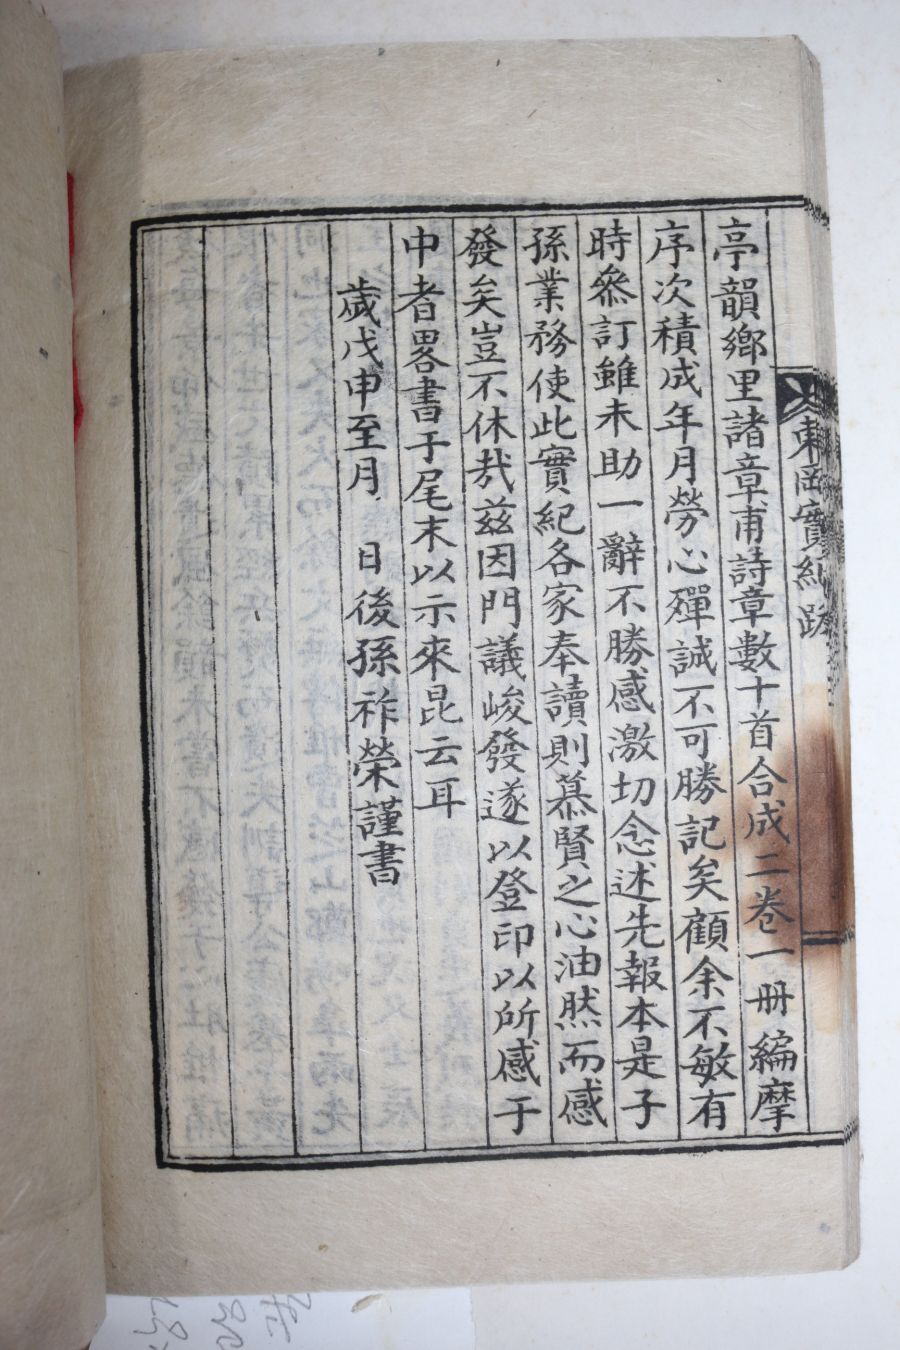 東岡實紀跋
亭韻鄉里諸章甫詩章數十首合成二卷一册編摩
序次積成年月勞心殫誠不可勝記矣顧余不敏有
時叅訂雖未助一辭不勝感激切念述先報本是子
孫業務使此實紀各家奉讀則慕賢之心油然而感
發矣豈不休哉茲因門議峻發遂以登印以所感于
中者畧書于尾末以示來昆云耳
歲戊申至月 日後孫祚榮謹書